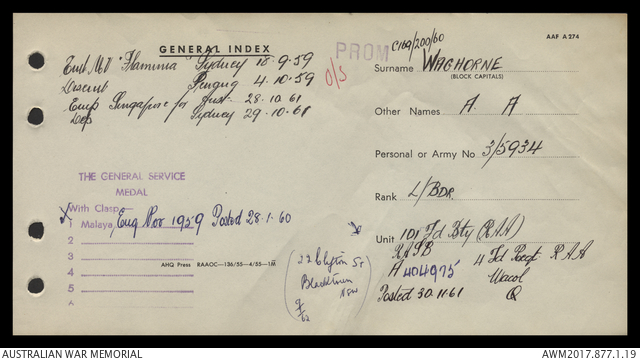 GENERAL INDEX
Emb M.V "Flaminia" Sydney 18.9.59
Disemb Penang 4.10.59
Emp Singapore for Aust. 28.10.61
Dep Sydney 29.10.61
THE GENERAL SERVICE
MEDAL
With Clasp
X Malaya, Enq Nov 1959 Posted 28.1.60
2
3
4
5
6
AHQ Press RAAOC—136/55—4/55—1M
AAF A 274
PROM C169/200/60
O/S
Surname WAGHORNE
(BLOCK CAPITALS)
Other Names A. A
Personal or Army No 3/5934
Rank L/BDR.
Unit 101 Fd Bty (RAA)
RASB 4 Fd Regt RAA
A 404975 Wacol
Posted 30.11.61 Q
(22 Clifton St
Blacktown
NSW
9/62)
AUSTRALIAN WAR MEMORIAL
AWM2017.877.1.19